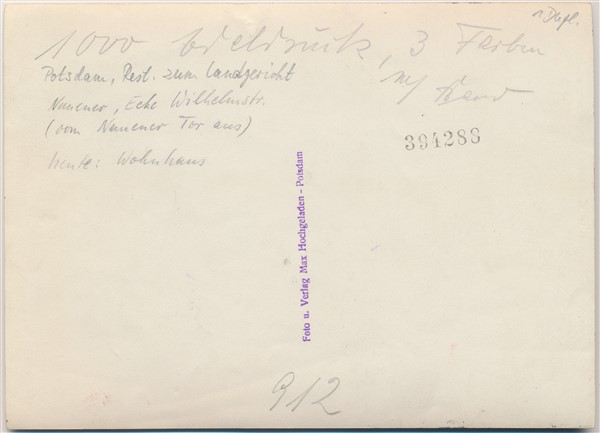 1 Dupl.
1000 Edeldruck, 3 Farben
m/ Rand
Potsdam, Rest. zum Landgericht
Nauener, Ecke Wilhelmstr.
(vom Nauener Tor aus)
heute: Wohnhaus
394286
Foto u. Verlag Max Hochgeladen - Potsdam
912